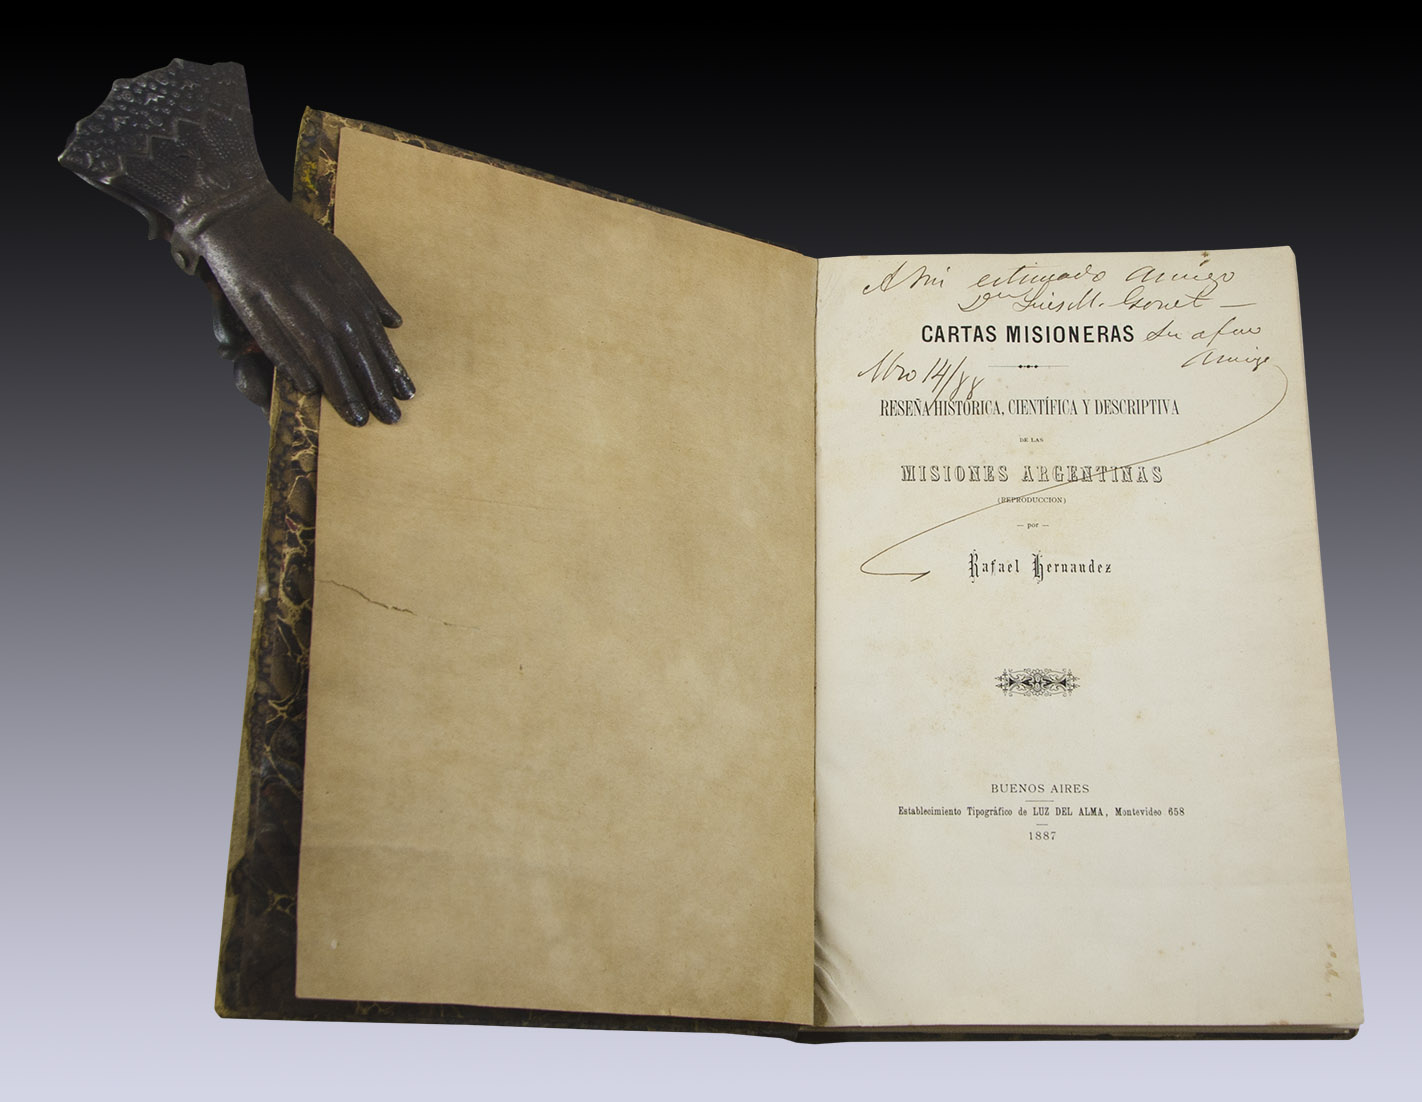 A mi estimado amigo
Don Luis M. Gonet —
CARTAS MISIONERAS
Su afmo
amigo
14/88
RESEÑA HISTÓRICA, CIENTÍFICA Y DESCRIPTIVA
DE LAS
MISIONES ARGENTINAS
(REPRODUCCION)
— por —
Rafael Hernandez
BUENOS AIRES
Establecimiento Tipográfico de LUZ DEL ALMA, Montevideo 658
1887